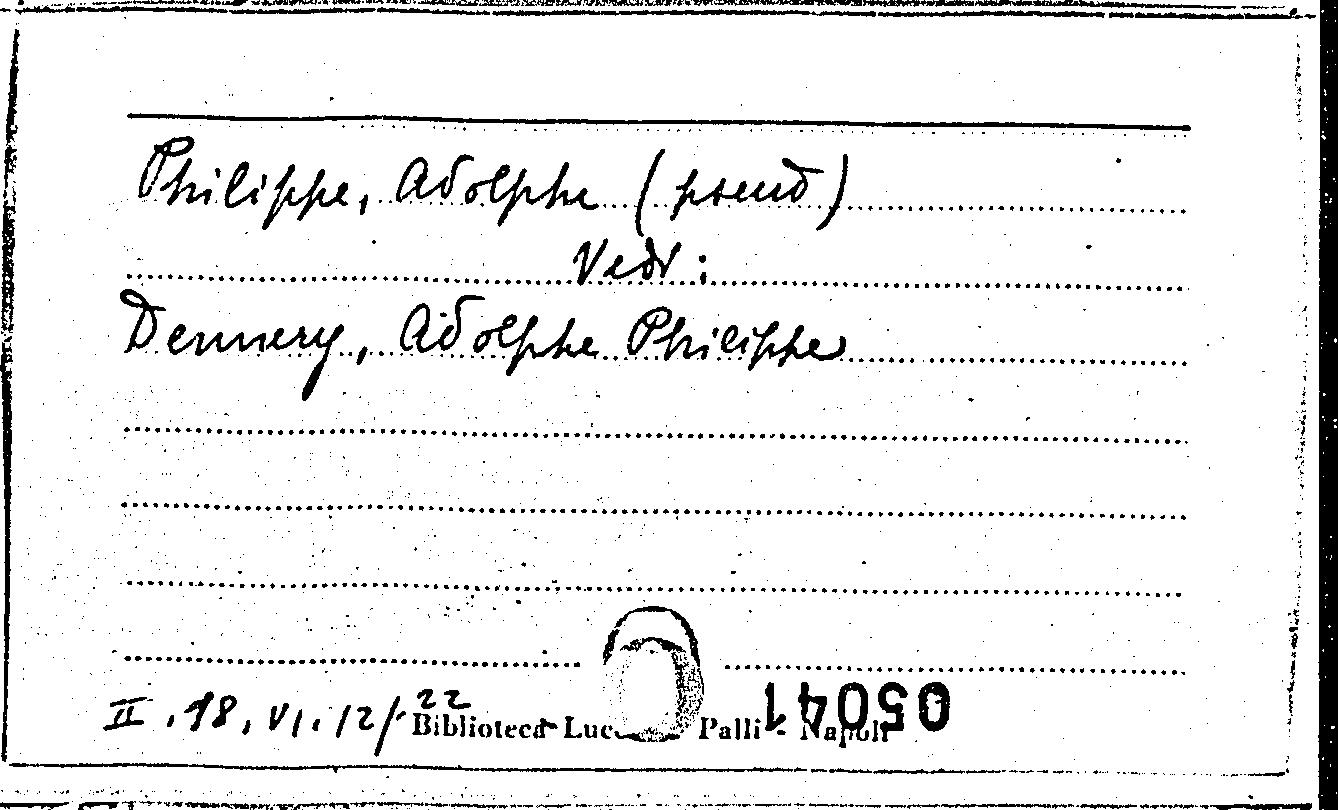 Philippe, Adolphe (pseud)
Vedi:
Dennery, Adolphe Philippe
II.18.VI.12/22
Biblioteca Palli - Napoli
05041